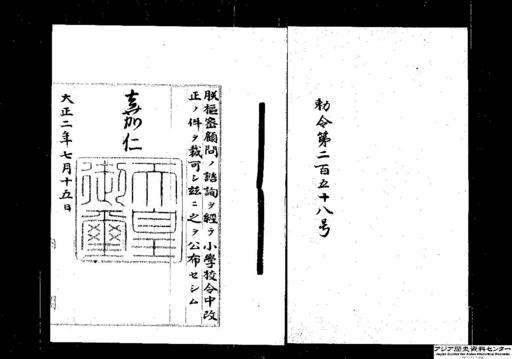 勅令第二百五十八号
朕樞密顧問ノ諮詢ヲ経テ小學校令中改
正ノ件ヲ裁可シ茲ニ之ヲ公布セシム
嘉仁
天皇
御璽
大正二年七月十五日
アジア歴史資料センター
Japan Center for Asian Historical Records